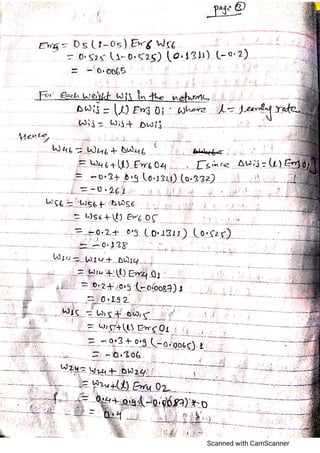 page ②
Err5 = O5 (1-O5) Err6 W56
= 0.525 (1-0.525) (0.1311) (-0.2)
= -0.0065
For each weight Wij in the network
ΔWij = (l) Errj Oi : where l = learning rate
Wij = Wij + ΔWij
Hence,
W46 = W46 + ΔW46
= W46 + (l) Err6 O4 [since ΔWij = (l) Errj Oi]
= -0.3 + 0.9 (0.1311) (0.332)
= -0.261
W56 = W56 + ΔW56
= W56 + (l) Err6 O5
= -0.2 + 0.9 (0.1311) (0.525)
= -0.138
W14 = W14 + ΔW14
= W14 + (l) Err4 O1
= 0.2 + 0.9 (-0.0087) 1
= 0.192
W15 = W15 + ΔW15
= W15 + (l) Err5 O1
= -0.3 + 0.9 (-0.0065) 1
= -0.306
W24 = W24 + ΔW24
= W24 + (l) Err4 O2
= 0.4 + 0.9 (-0.0087) * 0
= 0.4
Scanned with CamScanner